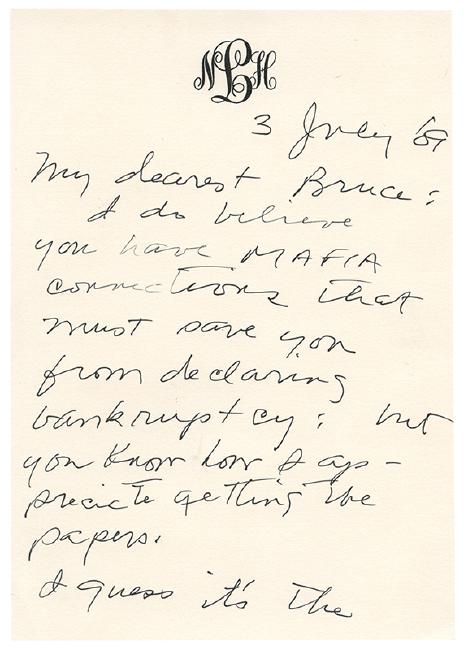 NLH
3 July '89
My dearest Bruce:
I do believe
you have MAFIA
connections that
must save you
from declaring
bankruptcy: but
you know how I ap-
preciate getting the
papers.
I guess it's the